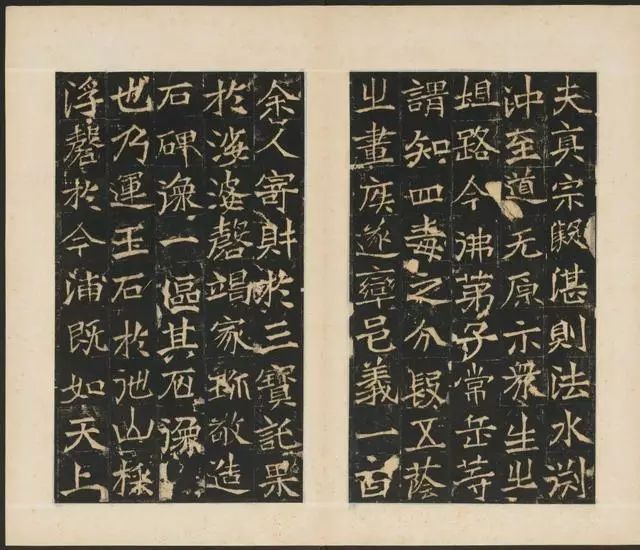 夫真宗凝湛則法水渕
沖至道无原示衆生之
坦路今佛弟子常岳等
謂知四毒之分段五蔭
之晝疾遂率邑義一百
余人寄財於三寶託果
於娑婆磬竭家珎敬造
石碑像一區其石像
也乃運玉石於他山採
浮磬於今浦既如天上